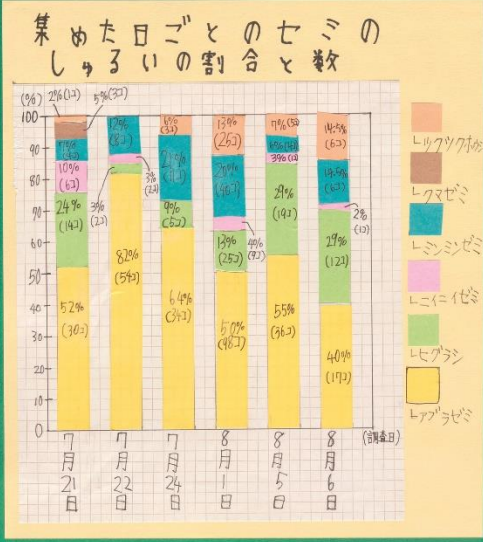 集めた日ごとのセミの
しゅるいの割合と数
(%)
2%(1コ)
5%(3コ)
100
90
80
70
60
50
40
30
20
10
0
10%
(6コ)
24%
(14コ)
52%
(30コ)
12%
(8コ)
3%
(2コ)
3%
(2コ)
82%
(54コ)
6%
(3コ)
9%
(5コ)
64%
(34コ)
13%
(25コ)
4%
13%
(25コ)
50%
(98コ)
7%(5コ)
3%
29%
(19コ)
55%
(36コ)
14.5%
(6コ)
14.5%
(6コ)
2%
(1コ)
29%
(12コ)
40%
(17コ)
7月21日
7月22日
7月24日
8月1日
8月5日
8月6日
(調査日)
クマゼミ
ミンミンゼミ
ニイニイゼミ
ヒグラシ
アブラゼミ